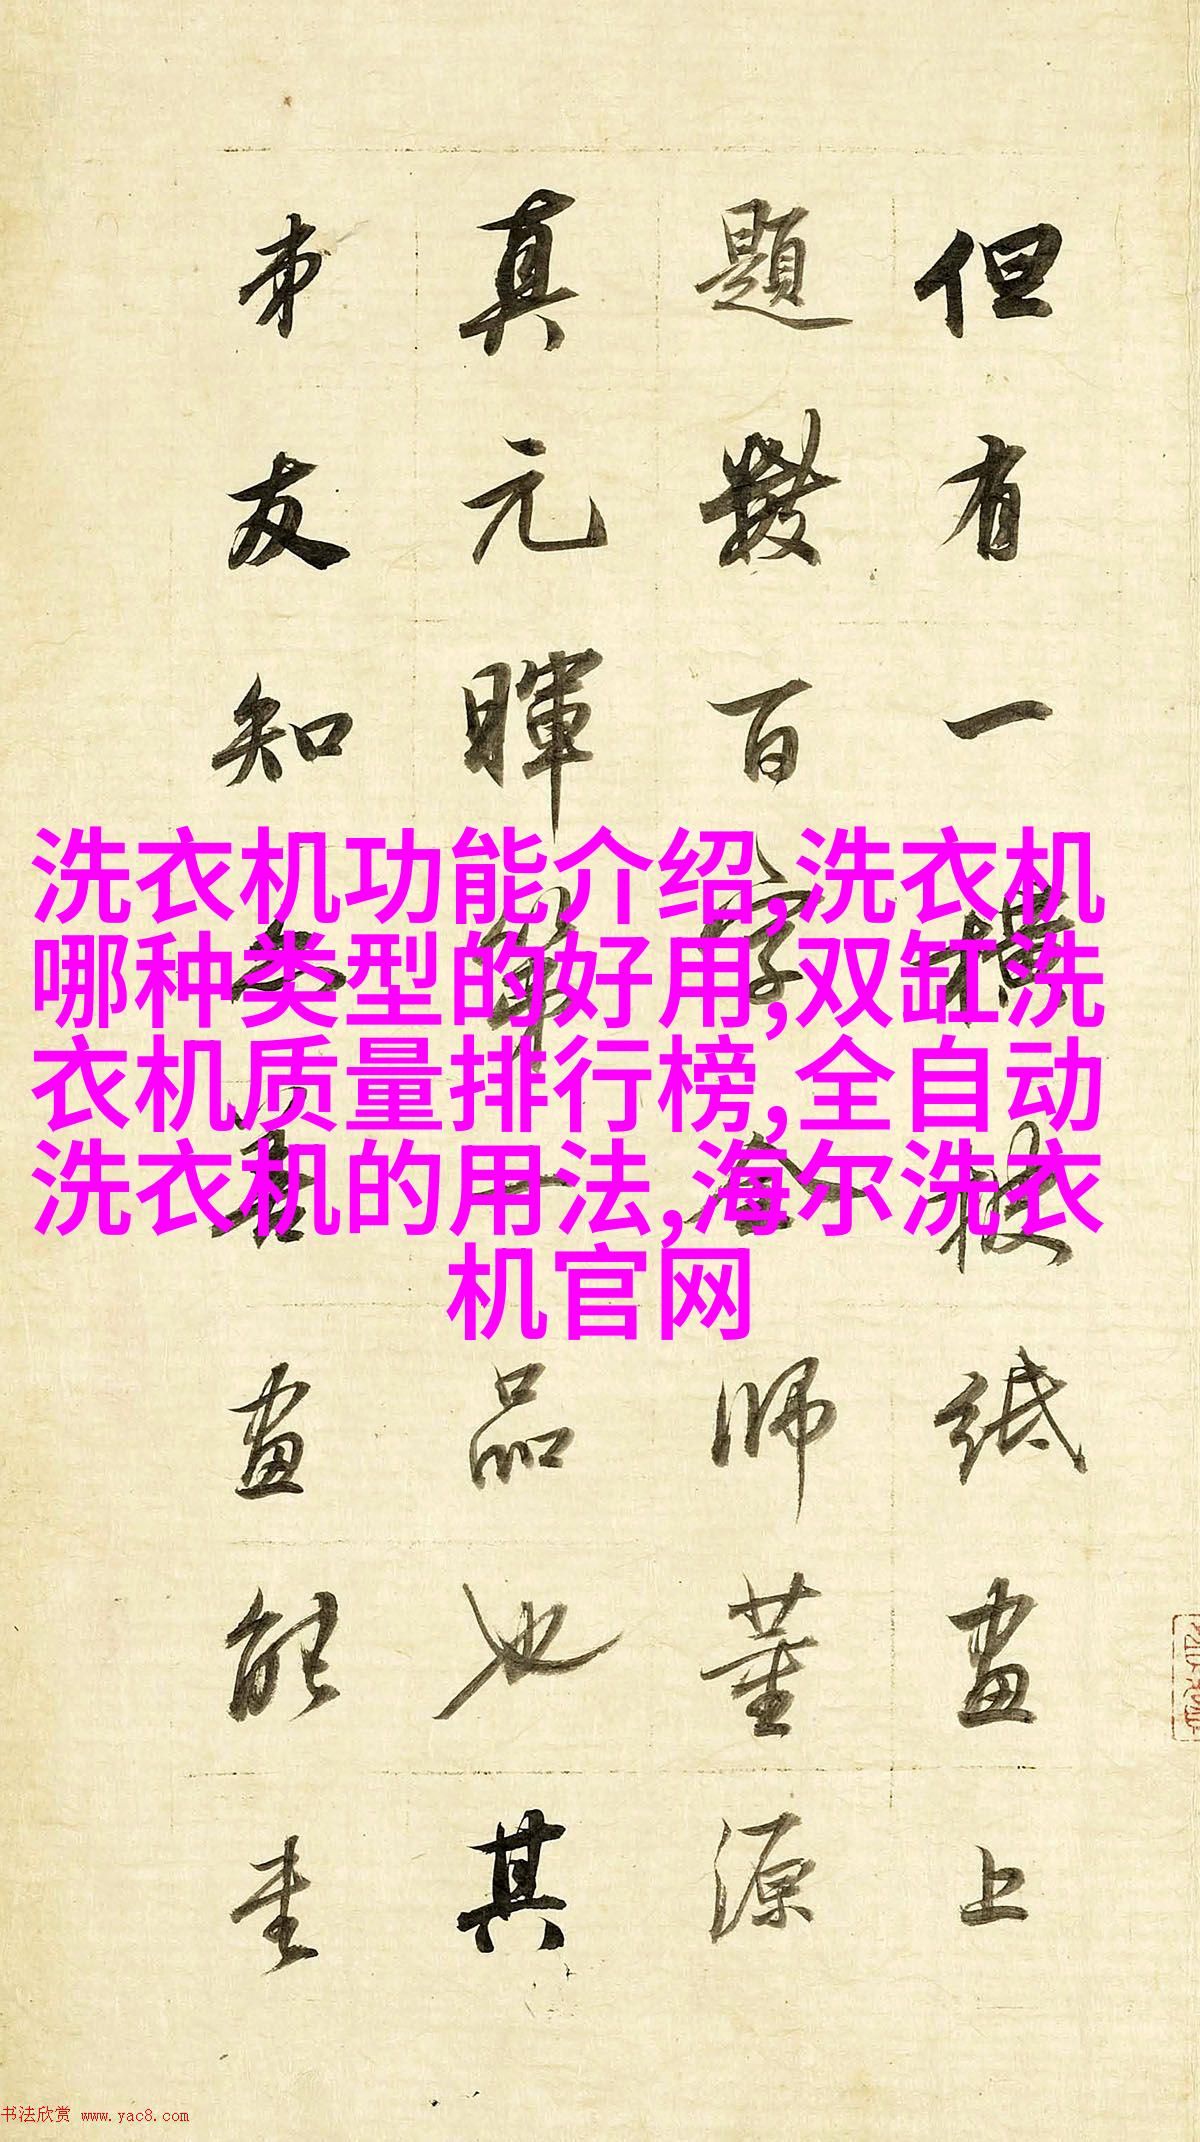 但有一横披纸画上
題數百字今師董源
真元暉第一品也其
弟友知
畫能重
洗衣机功能介绍,洗衣机
哪种类型的好用,双缸洗
衣机质量排行榜,全自动
洗衣机的用法,海尔洗衣
机官网
书法欣赏 www.yac8.com